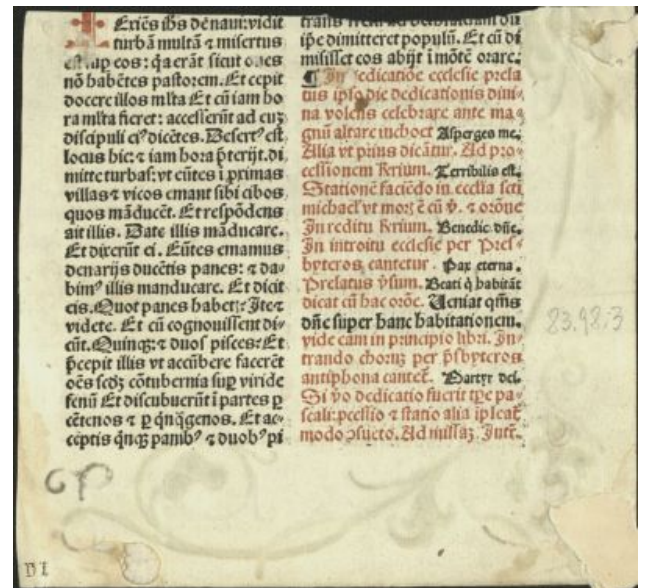 Exiẽs ihs de naui: vidit
turbã multã ⁊ misertus
eos: q̃a erãt sicut oues
nõ habẽtes pastorem. Et cepit
docere illos mlta Et cũ iam ho
ra mlta fieret: accesserũt ad euʒ
discipuli eiꝰ dicẽtes. Desertꝰ est
locus hic: ⁊ iam hora p̃terijt. di
mitte turbas: vt eũtes ĩ primas
villas ⁊ vicos emant sibi cibos
quos mãducẽt. Et respõdens
ait illis. Date illis mãducare.
Et dixerũt ei. Eũtes emamus
denarijs ducẽtis panes: ⁊ da-
bimꝰ illis manducare. Et dicit
eis. Quot panes habetꝭ: Ite ⁊
videte. Et cũ cognouissent di-
cũt. Quinqꝫ: ⁊ duos pisces: Et
p̃cepit illis vt accũbere facerẽt
oẽs scdʒ cõtubernia suꝑ viride
fenũ Et discubuerũt ĩ partes ꝑ
cẽtenos ⁊ ꝑ q̃nq̃genos. Et ac-
ceptis q̃nqꝫ panibꝰ ⁊ duobꝰ pi
ip̃e dimitteret populũ. Et cũ di
misisset eos abijt ĩ mõtẽ orare.
¶ In dedicatiõe ecclesie prela
tus ipso die dedicationis diui-
na volens celebrare ante ma-
gnũ altare inchoet Asperges me.
Alia vt prius dicãtur. Ad pro-
cessionem Rrium. Terribilis est.
Stationẽ faciẽdo in ecclĩa scti
michael' vt morʒ ẽ cũ v̈. ⁊ orõne
In reditu Rrium. Benedic dñe.
In introitu ecclesie per Pres-
byteros cantetur. Pax eterna.
Prelatus ṽsum. Beati q̇ habitãt
dicat cũ hac orõe. Ueniat q̃ms
dñe super hanc habitationem.
vide eam in principio libri. In-
trando chorũ per p̃sbyteros
antiphona cantet̃. Martyr dei.
Si ṽo dedicatio fuerit tp̃e pa-
scali: ꝓcessio ⁊ statio alia ipleat̃
modo ↄsueto. Ad missaʒ Intr̃.
83.98.3
B I